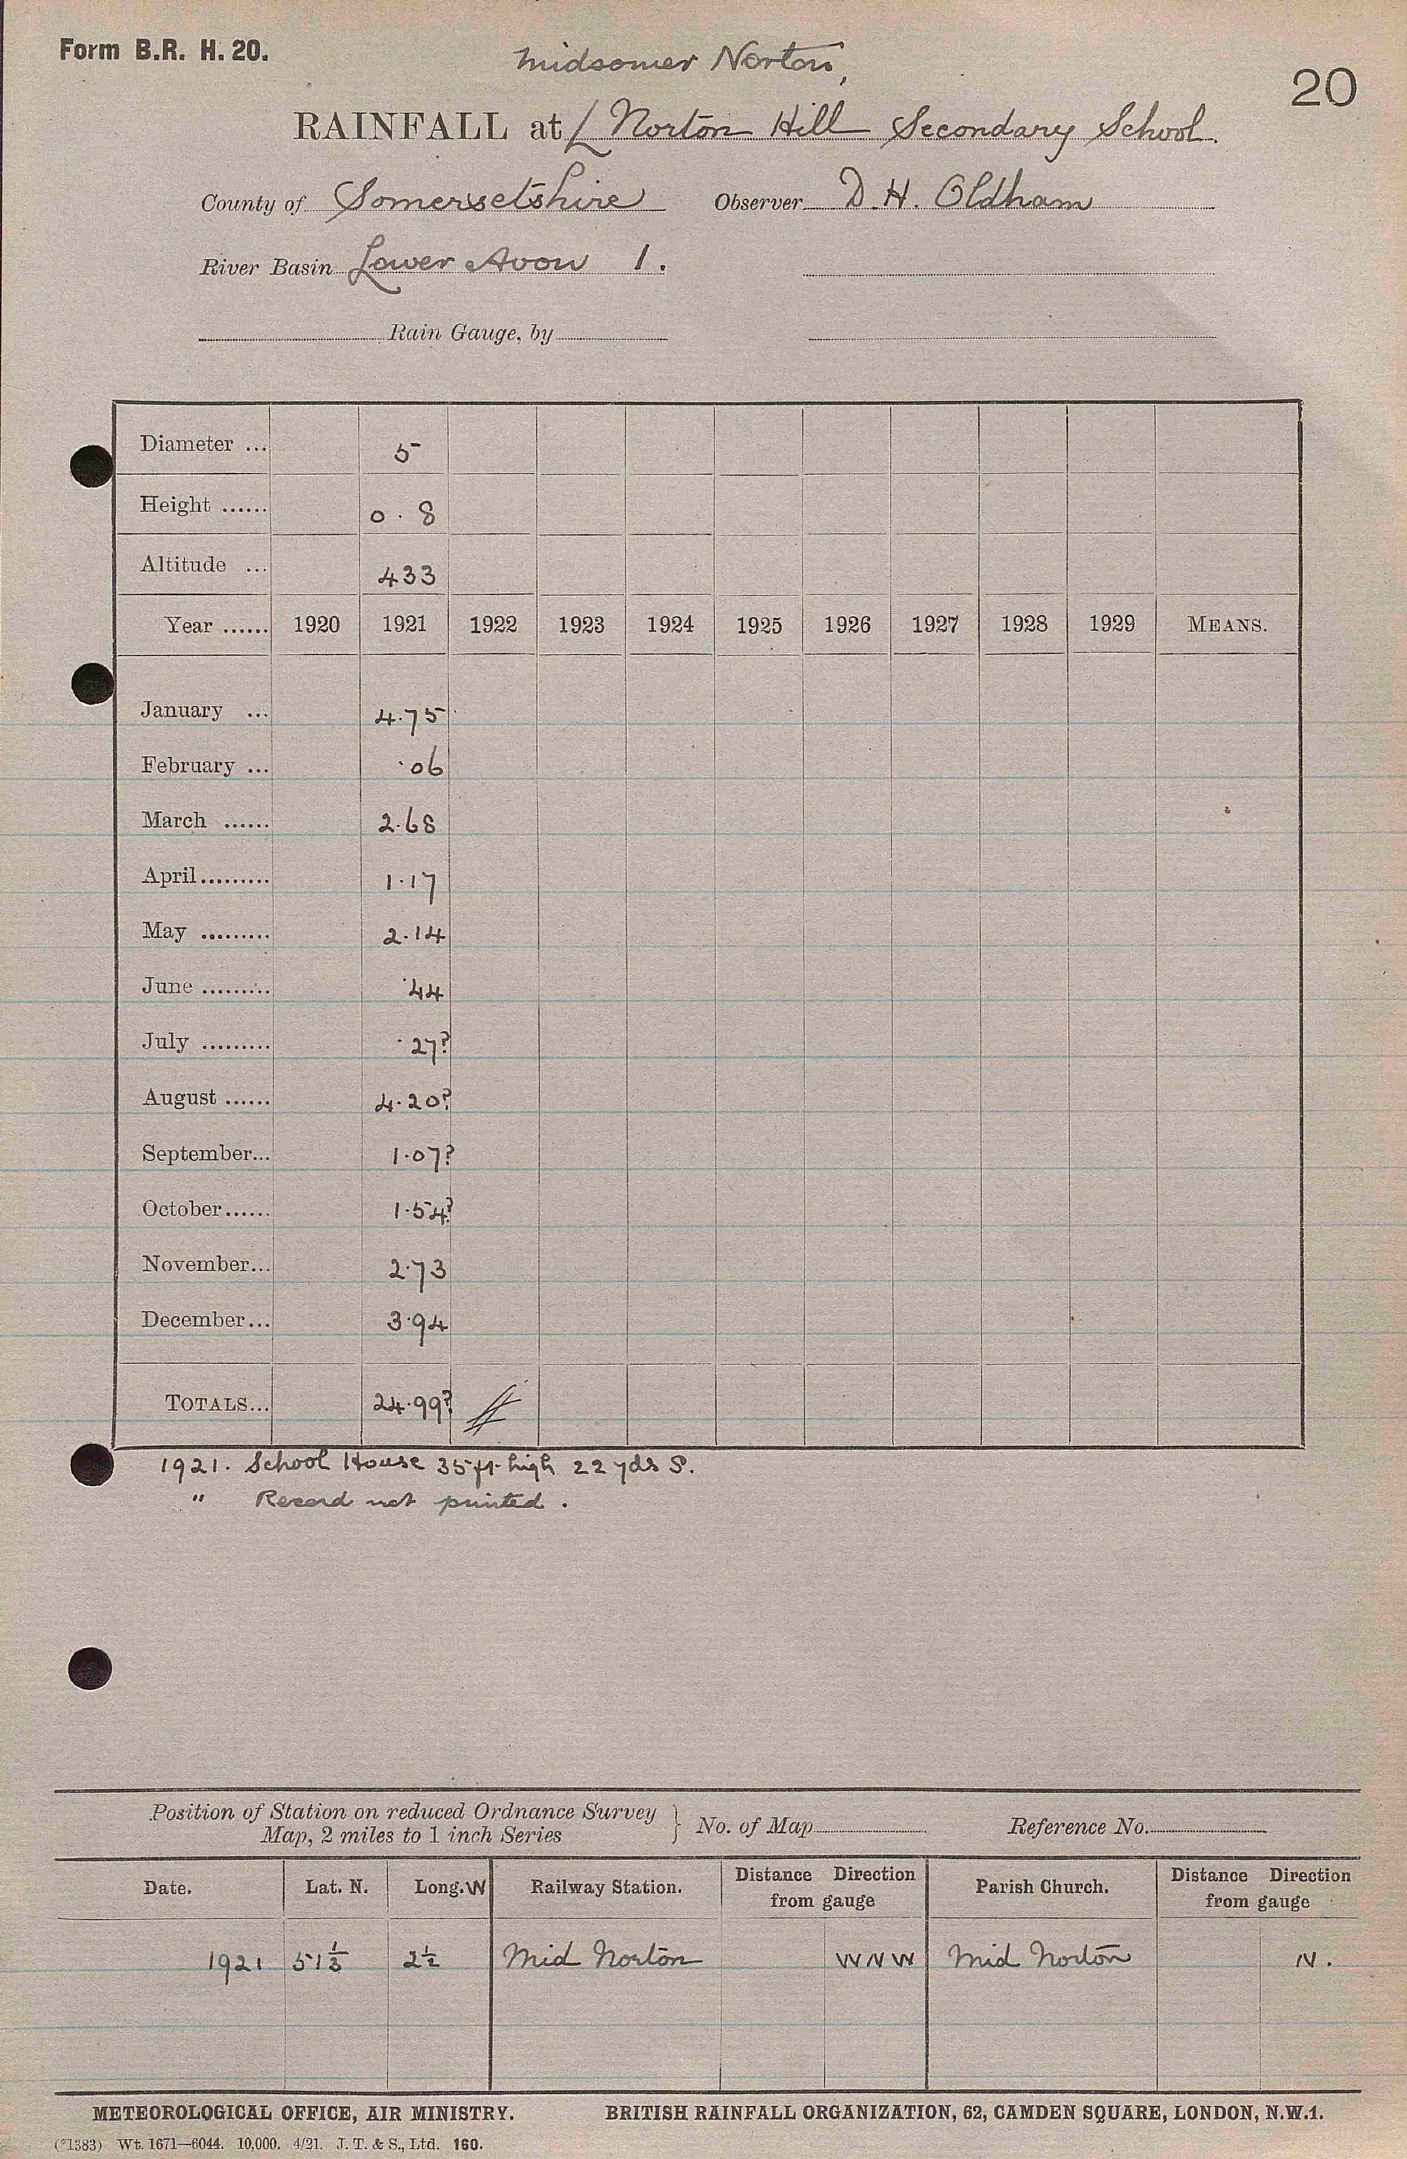 Form B.R. H. 20.
20
Midsomer Norton,
RAINFALL at Norton Hill Secondary School.
County of Somersetshire Observer D. H. Oldham
River Basin Lower Avon 1.
Rain Gauge, by
Diameter ... 5
Height ...... 0.8
Altitude ... 433
Year ...... 1920 1921 1922 1923 1924 1925 1926 1927 1928 1929 MEANS.
January ... 4.75
February ... .06
March ...... 2.68
April......... 1.17
May ......... 2.14
June ......... .44
July ......... .27?
August ...... 4.20?
September... 1.07?
October...... 1.54?
November... 2.73
December... 3.94
TOTALS... 24.99?
1921. School House 35ft. high 22 yds S.
" Record not printed.
Position of Station on reduced Ordnance Survey
Map, 2 miles to 1 inch Series } No. of Map Reference No.
Date. Lat. N. Long. W Railway Station. Distance Direction from gauge Parish Church. Distance Direction from gauge
1921 51⅓ 2½ Mid Norton WNW Mid Norton N.
METEOROLOGICAL OFFICE, AIR MINISTRY. BRITISH RAINFALL ORGANIZATION, 62, CAMDEN SQUARE, LONDON, N.W.1.
(*1383) Wt. 1671—6044. 10,000. 4/21. J. T. & S., Ltd. 160.